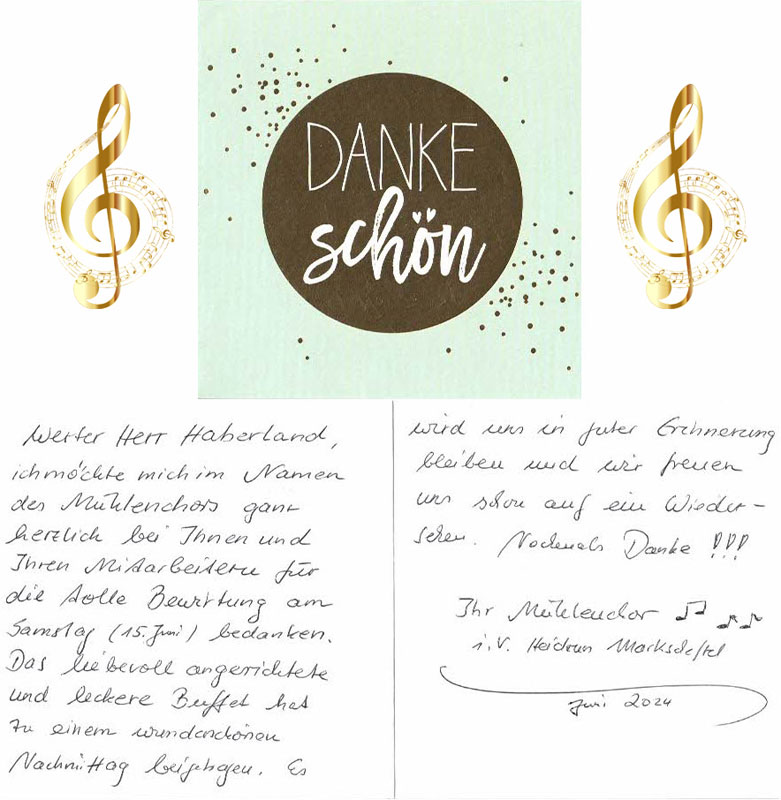 DANKE
schön
Werter Herr Haberland,
ich möchte mich im Namen
des Mühlenchors ganz
herzlich bei Ihnen und
Ihren Mitarbeitern für
die tolle Bewirtung am
Samstag (15. Juni) bedanken.
Das liebevoll angerichtete
und leckere Buffet hat
zu einem wunderschönen
Nachmittag beigetragen. Es
wird uns in guter Erinnerung
bleiben und wir freuen
uns schon auf ein Wieder-
sehen. Nochmals Danke !!!
Ihr Mühlenchor
i.V. Heidrun
Juni 2024